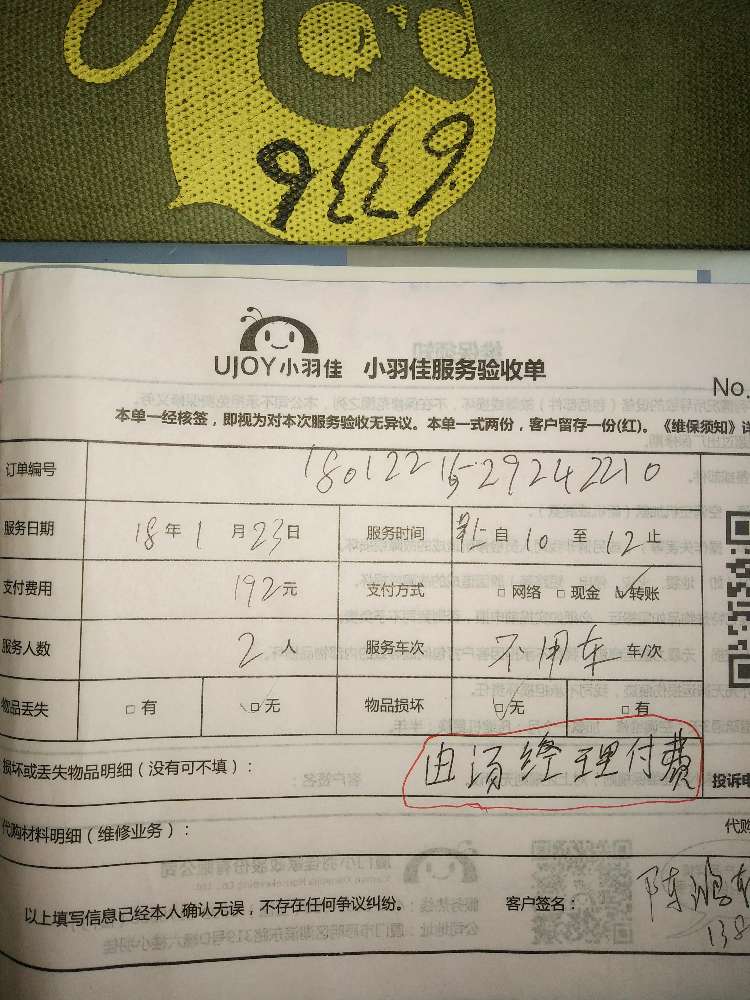 9336
UJOY小羽佳 小羽佳服务验收单
No.
本单一经核签，即视为对本次服务验收无异议。本单一式两份，客户留存一份(红)。《维保须知》详
订单编号 1801221529242210
服务日期 18年1月23日 服务时间 自10至12止
支付费用 192元 支付方式 □网络 □现金 □转账
服务人数 2人 服务车次 不用车 车/次
物品丢失 □有 □无 物品损坏 □无 □有
损坏或丢失物品明细（没有可不填）： 由汤经理付费 投诉电
代购材料明细（维修业务）： 代购
以上填写信息已经本人确认无误，不存在任何争议纠纷。 客户签名： 陈鸿
138